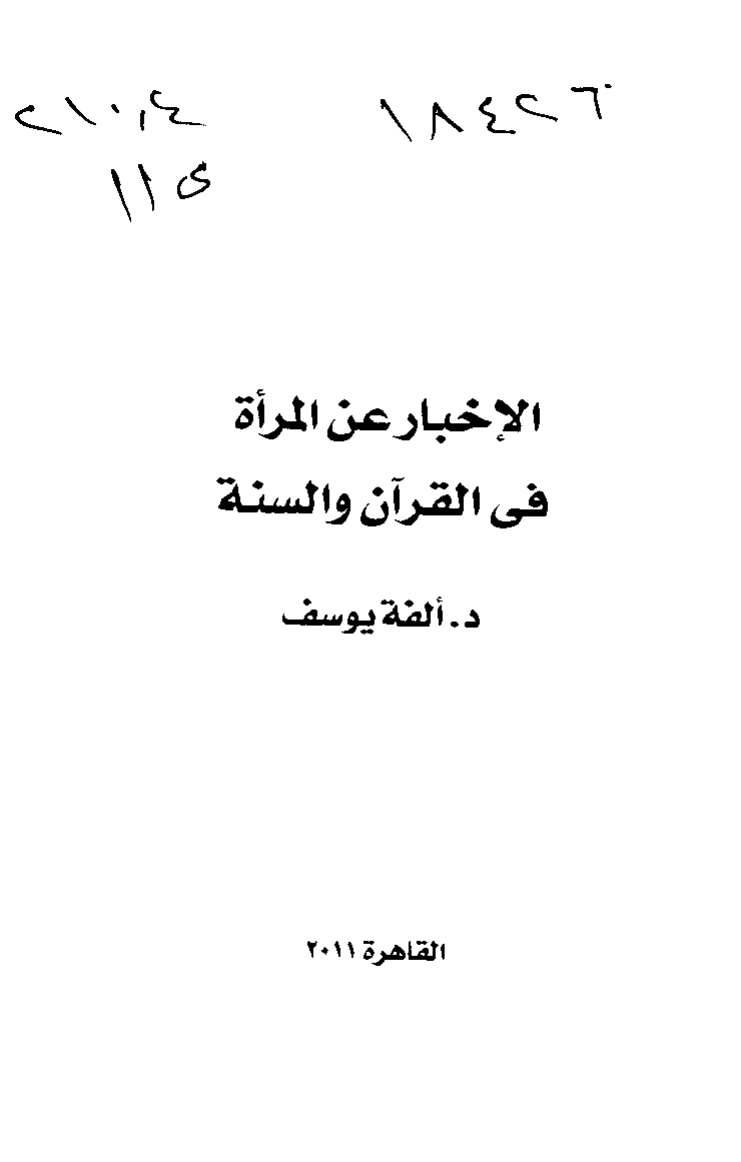 ١٨٤٢٦
٢١٠,٤
١١ ى
الإخبار عن المرأة
فى القرآن والسنة
د. ألفة يوسف
القاهرة ٢٠١١